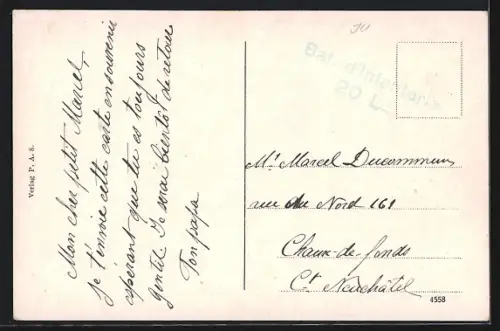 Mon cher petit Marcel,
je t'envoie cette carte en souvenir
espérant que tu es toujours
gentil. Je serai bientôt de retour
Ton papa
Verlag P. A. S.
Bat. d'Infanterie
20 L
Mr Marcel Ducommun
rue du Nord 161
Chaux-de-fonds
Ct Neuchâtel
4558